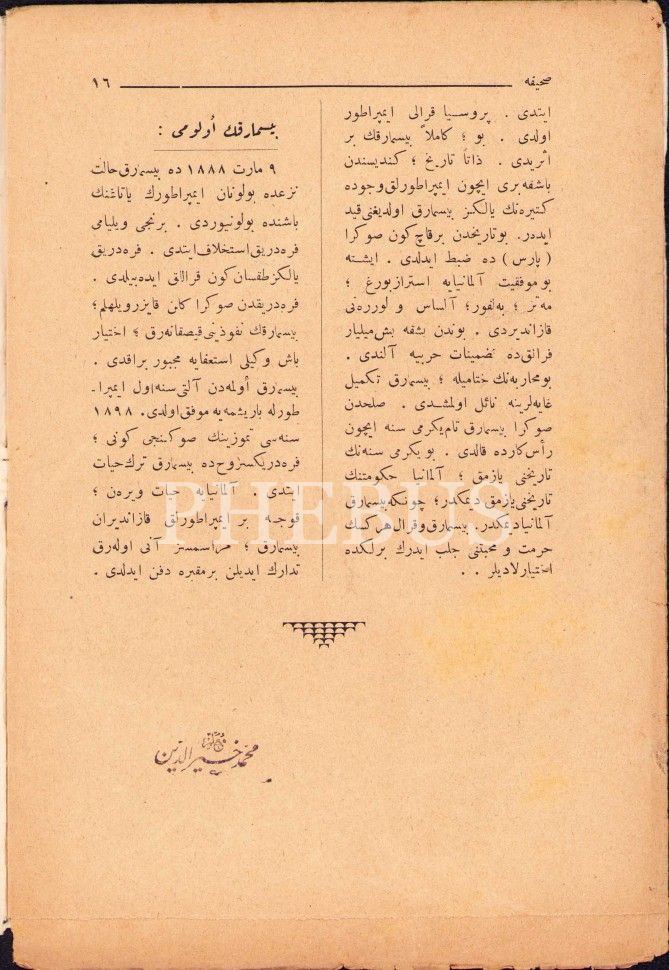 صحیفه ١٦
ایتدی . پروسیا قرالی ایمپراطور
اولدی . بو ؛ كاملاً بیسمارقك بر
اثریدی . ذاتاً تاریخ ؛ كندیسندن
باشقه‌بری ایچون ایمپراطورلق وجوده
كتیره‌نك یالكز بیسمارق اولدیغنی قید
ایده‌ر. بوتاریخدن برقاچ كون صوكرا
( پارس ) ده ضبط ایدلدی . ایشته
بو موفقیت آلمانیایه استرازبورغ ؛
مه‌تز ؛ به‌لفور؛ آلساس و لوره‌نی
قازاندیردی . بوندن بشقه بش میلیار
فرانق ده تضمینات حربیه آلندی .
بومحاربه‌نك ختامیله ؛ بیسمارق تكمیل
غایه‌لرینه نائل اولمشدی . صلحدن
صوكرا بیسمارق تام یكرمی سنه ایچون
رأس كارده قالدی . بو یكرمی سنه‌نك
تاریخنی یازمق ؛ آلمانیا حكومتنك
تاریخنی یازمق دیمكدر؛ چونكه بیسمارق
آلمانیا دیمكدر. بیسمارق و قرال هر كسك
حرمت و محبتنی جلب ایدرك برلكده
اختیارلادیلر . .
بیسمارقك أولومی :
٩ مارت ١٨٨٨ ده بیسمارق حالت
نزعده بولونان ایمپراطورك یاتاغنك
باشنده بولونیوردی . برنجی ویلیامی
فره‌دریق استخلاف ایتدی . فره‌دریق
یالكز طقسان كون قراللق ایده‌بیلدی .
فره‌دریقدن صوكرا كلن قایزر ویلهلم ؛
بیسمارقك نفوذینی قیصقانه‌رق ؛ اختیار
باش وكیلی استعفایه مجبور براقدی .
بیسمارق أولمه‌دن آلتی سنه اول ایمپرا-
طورله باریشمه‌یه موفق اولدی. ١٨٩٨
سنه‌سی تموزینك صوكنجی كونی ؛
فره‌دریكسروح ده بیسمارق ترك حیات
ایتدی . آلمانیایه حیات ویره‌ن ؛
قوجه بر ایمپراطورلق قازاندیران
بیسمارق ؛ مراسمسز آنی اوله‌رق
تدارك ایدیلن بر مقبره دفن ایدلدی .
PHEBUS
محمد خیر الدین